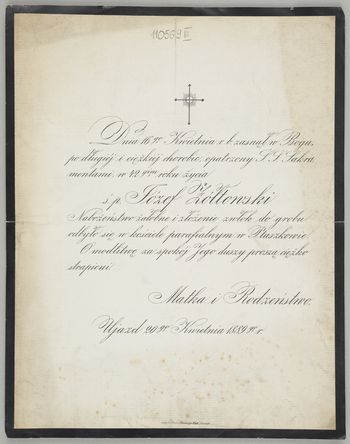 110569 III
Dnia 16go Kwietnia r. b. zasnął w Bogu,
po długiej i ciężkiej chorobie, opatrzony S. S. Sakra
mentami, w 42gim roku życia
ś. p. Józef Żółtowski
Nabożeństwo żałobne i złożenie zwłok do grobu
odbyło się w kościele parafialnym w
O modlitwę za spokój Jego duszy proszą ciężko
strapieni
Matka i Rodzeństwo.
Ujazd 20go Kwietnia 1889go r.